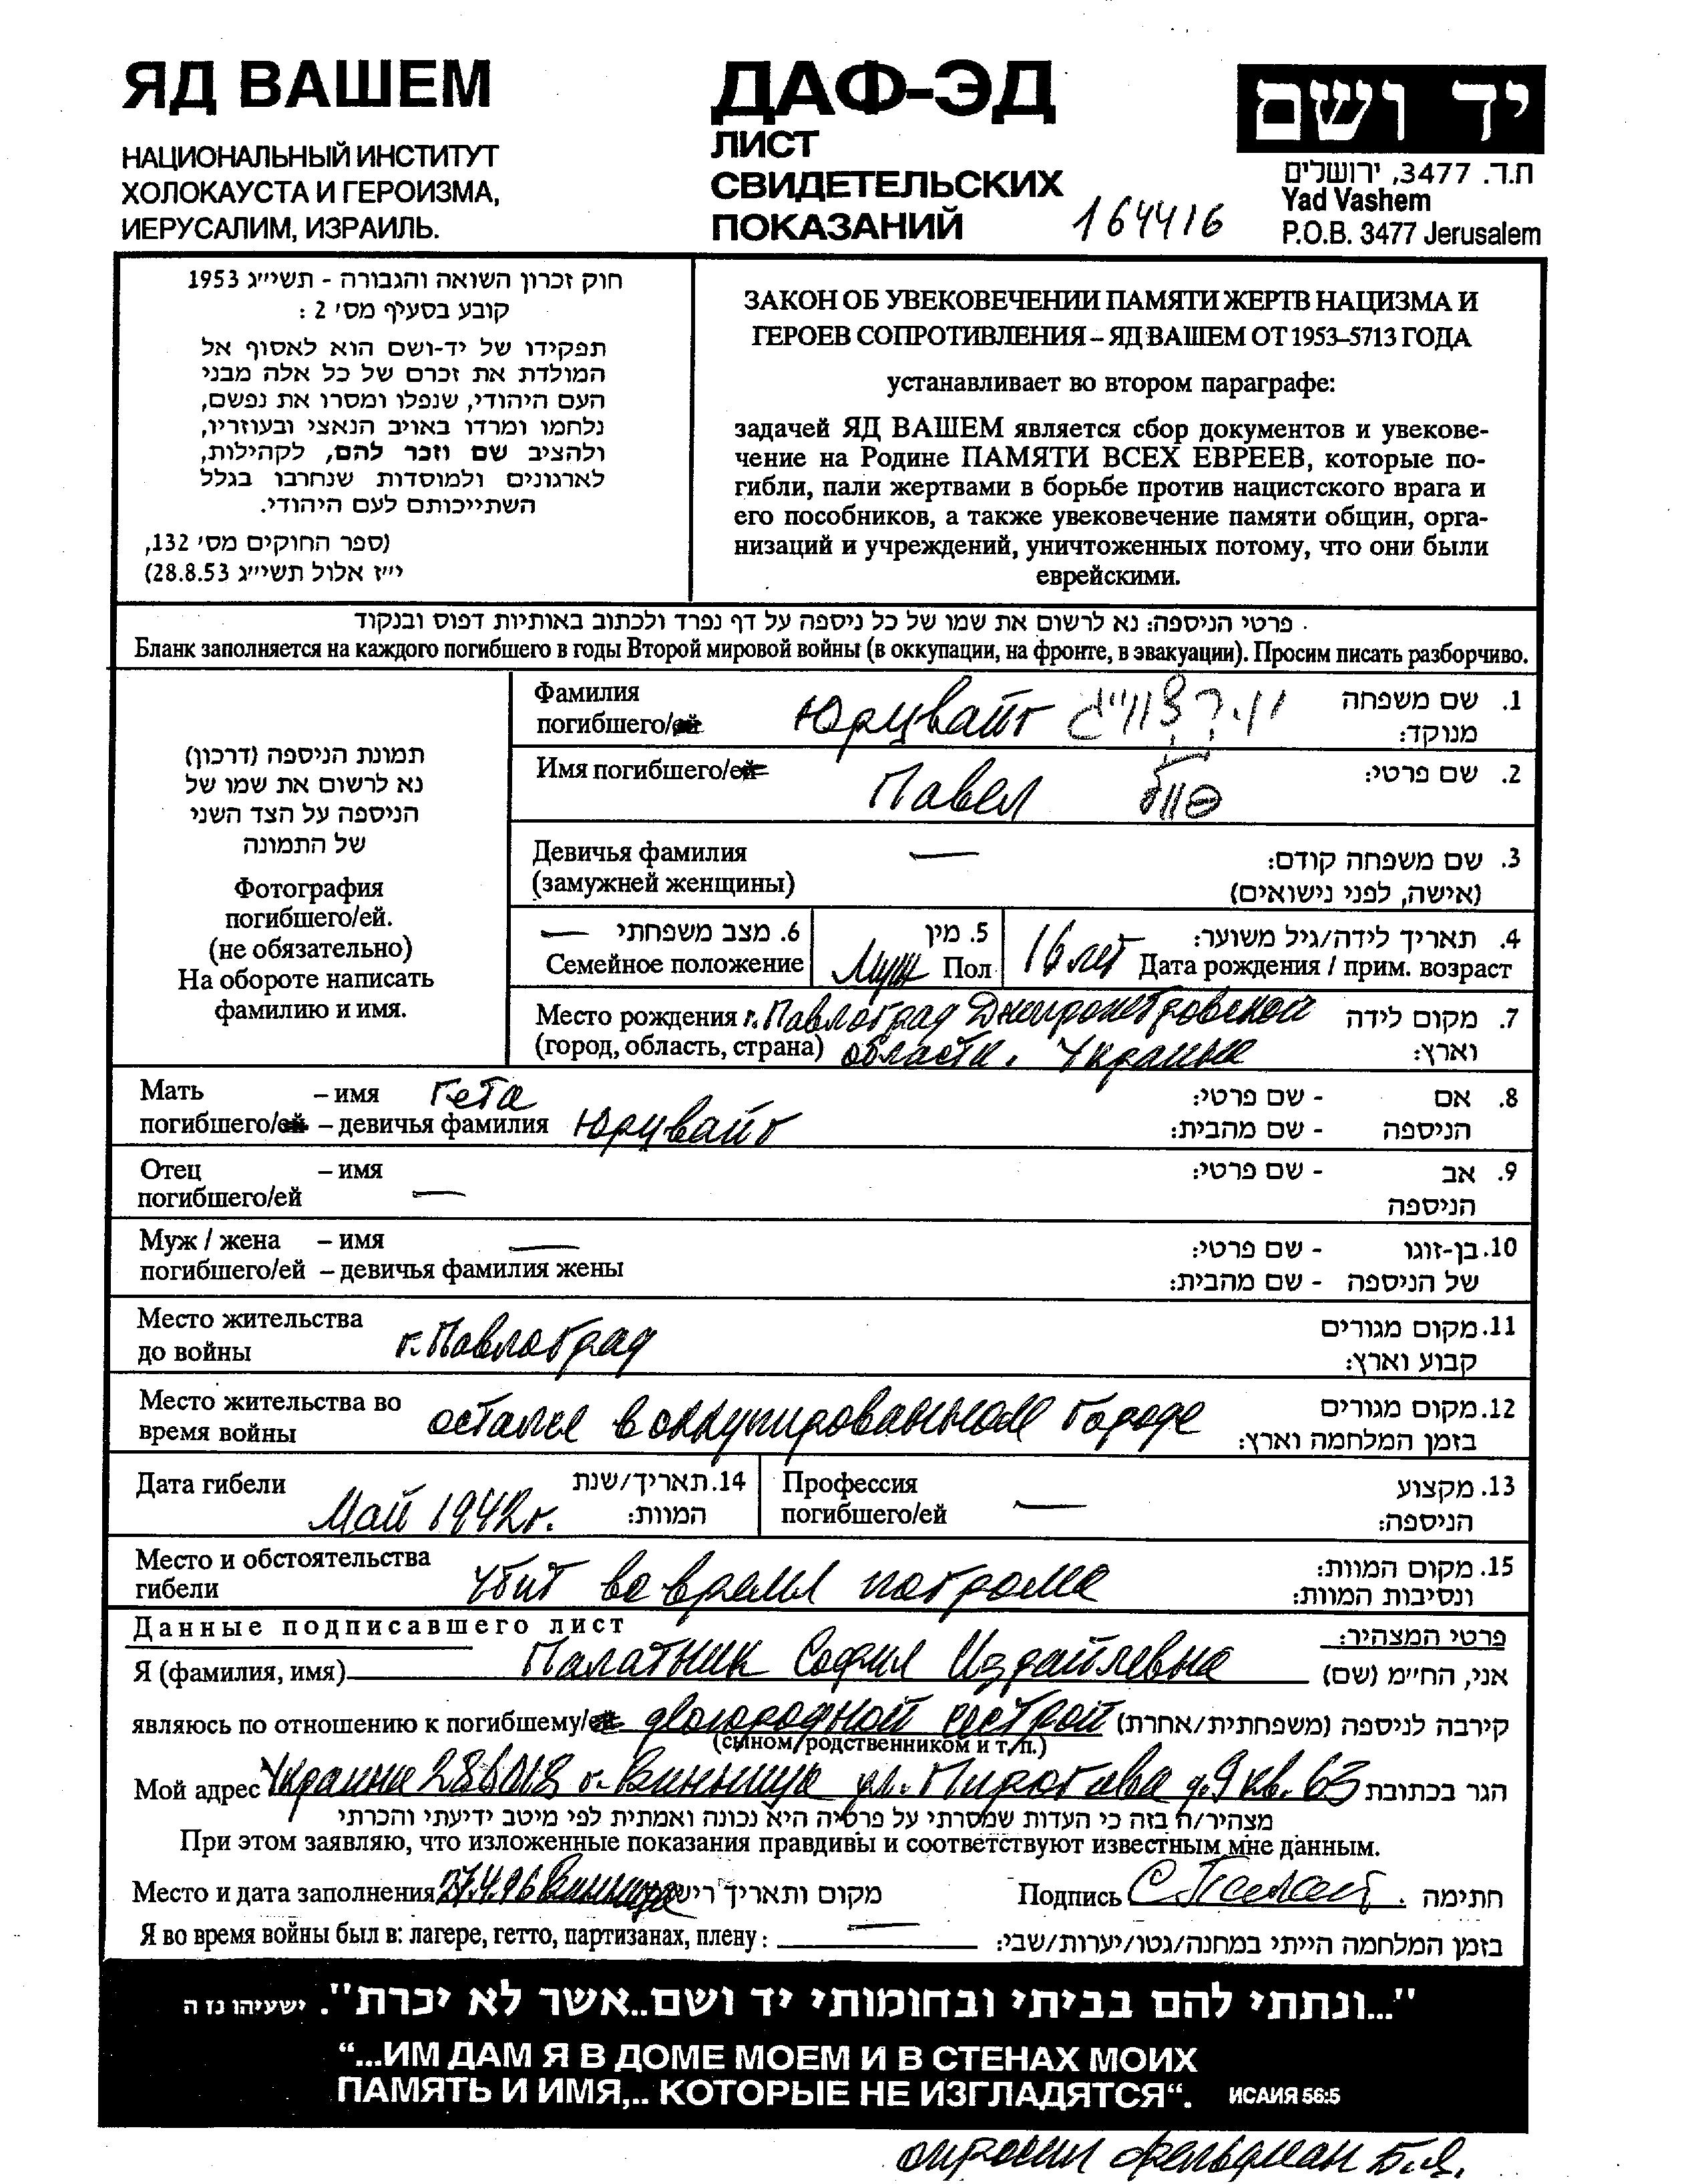 ЯД ВАШЕМ
НАЦИОНАЛЬНЫЙ ИНСТИТУТ
ХОЛОКАУСТА И ГЕРОИЗМА,
ИЕРУСАЛИМ, ИЗРАИЛЬ.
ДАФ-ЭД
ЛИСТ
СВИДЕТЕЛЬСКИХ
ПОКАЗАНИЙ 164416
יד ושם
ת.ד. 3477, ירושלים
Yad Vashem
P.O.B. 3477 Jerusalem
חוק זכרון השואה והגבורה - תשי״ג 1953
קובע בסעיף מס׳ 2 :
תפקידו של יד-ושם הוא לאסוף אל
המולדת את זכרם של כל אלה מבני
העם היהודי, שנפלו ומסרו את נפשם,
נלחמו ומרדו באויב הנאצי ובעוזריו,
ולהציב שם וזכר להם, לקהילות,
לארגונים ולמוסדות שנחרבו בגלל
השתייכותם לעם היהודי.
(ספר החוקים מס׳ 132,
י״ז אלול תשי״ג 28.8.53)
ЗАКОН ОБ УВЕКОВЕЧЕНИИ ПАМЯТИ ЖЕРТВ НАЦИЗМА И
ГЕРОЕВ СОПРОТИВЛЕНИЯ – ЯД ВАШЕМ ОТ 1953–5713 ГОДА
устанавливает во втором параграфе:
задачей ЯД ВАШЕМ является сбор документов и увекове-
чение на Родине ПАМЯТИ ВСЕХ ЕВРЕЕВ, которые по-
гибли, пали жертвами в борьбе против нацистского врага и
его пособников, а также увековечение памяти общин, орга-
низаций и учреждений, уничтоженных потому, что они были
еврейскими.
פרטי הניספה: נא לרשום את שמו של כל ניספה על דף נפרד ולכתוב באותיות דפוס ובנקוד
Бланк заполняется на каждого погибшего в годы Второй мировой войны (в оккупации, на фронте, в эвакуации). Просим писать разборчиво.
תמונת הניספה (דרכון)
נא לרשום את שמו של
הניספה על הצד השני
של התמונה
Фотография
погибшего/ей.
(не обязательно)
На обороте написать
фамилию и имя.
Фамилия שם משפחה .1
погибшего/ей Юрцвайг מנוקד:
Имя погибшего/ей Павел שם פרטי: .2
Девичья фамилия — שם משפחה קודם: .3
(замужней женщины) (אישה, לפני נישואים)
— 6. מצב משפחתי
Семейное положение
5. מין
Муж Пол
4. תאריך לידה/גיל משוער:
16 лет Дата рождения / прим. возраст
Место рождения г. Павлоград Днепропетровской מקום לידה .7
(город, область, страна) области. Украина וארץ:
Мать – имя Гета - שם פרטי: אם .8
погибшего/ей – девичья фамилия Юрцвайг - שם מהבית: הניספה
Отец – имя - שם פרטי: אב .9
погибшего/ей — הניספה
Муж / жена – имя — - שם פרטי: 10.בן-זוגו
погибшего/ей – девичья фамилия жены - שם מהבית: של הניספה
Место жительства 11.מקום מגורים
до войны г. Павлоград קבוע וארץ:
Место жительства во 12.מקום מגורים
время войны остался в оккупированном городе בזמן המלחמה וארץ:
Дата гибели 14.תאריך/שנת
Май 1942г. המוות:
Профессия 13. מקצוע
погибшего/ей — הניספה:
Место и обстоятельства 15. מקום המוות:
гибели убит во время погрома ונסיבות המוות:
Данные подписавшего лист פרטי המצהיר:
Я (фамилия, имя) Палатник София Израйлевна אני, הח״מ (שם)
являюсь по отношению к погибшему/ей двоюродной сестрой קירבה לניספה (משפחתית/אחרת)
(сыном/родственником и т.п.)
Мой адрес Украина 286018 г. Винница ул. Пирогова д.9 кв. 63 הגר בכתובת
מצהיר/ה בזה כי העדות שמסרתי על פרטיה היא נכונה ואמתית לפי מיטב ידיעתי והכרתי
При этом заявляю, что изложенные показания правдивы и соответствуют известным мне данным.
Место и дата заполнения 27.4.96 Винница מקום ותאריך רישום Подпись С. Палат חתימה
Я во время войны был в: лагере, гетто, партизанах, плену: — בזמן המלחמה הייתי במחנה/גטו/יערות/שבי:
"...ונתתי להם בביתי ובחומותי יד ושם..אשר לא יכרת". ישעיהו נז ה
“...ИМ ДАМ Я В ДОМЕ МОЕМ И В СТЕНАХ МОИХ
ПАМЯТЬ И ИМЯ,.. КОТОРЫЕ НЕ ИЗГЛАДЯТСЯ“. ИСАИЯ 56:5
опросил Фельдман Б.